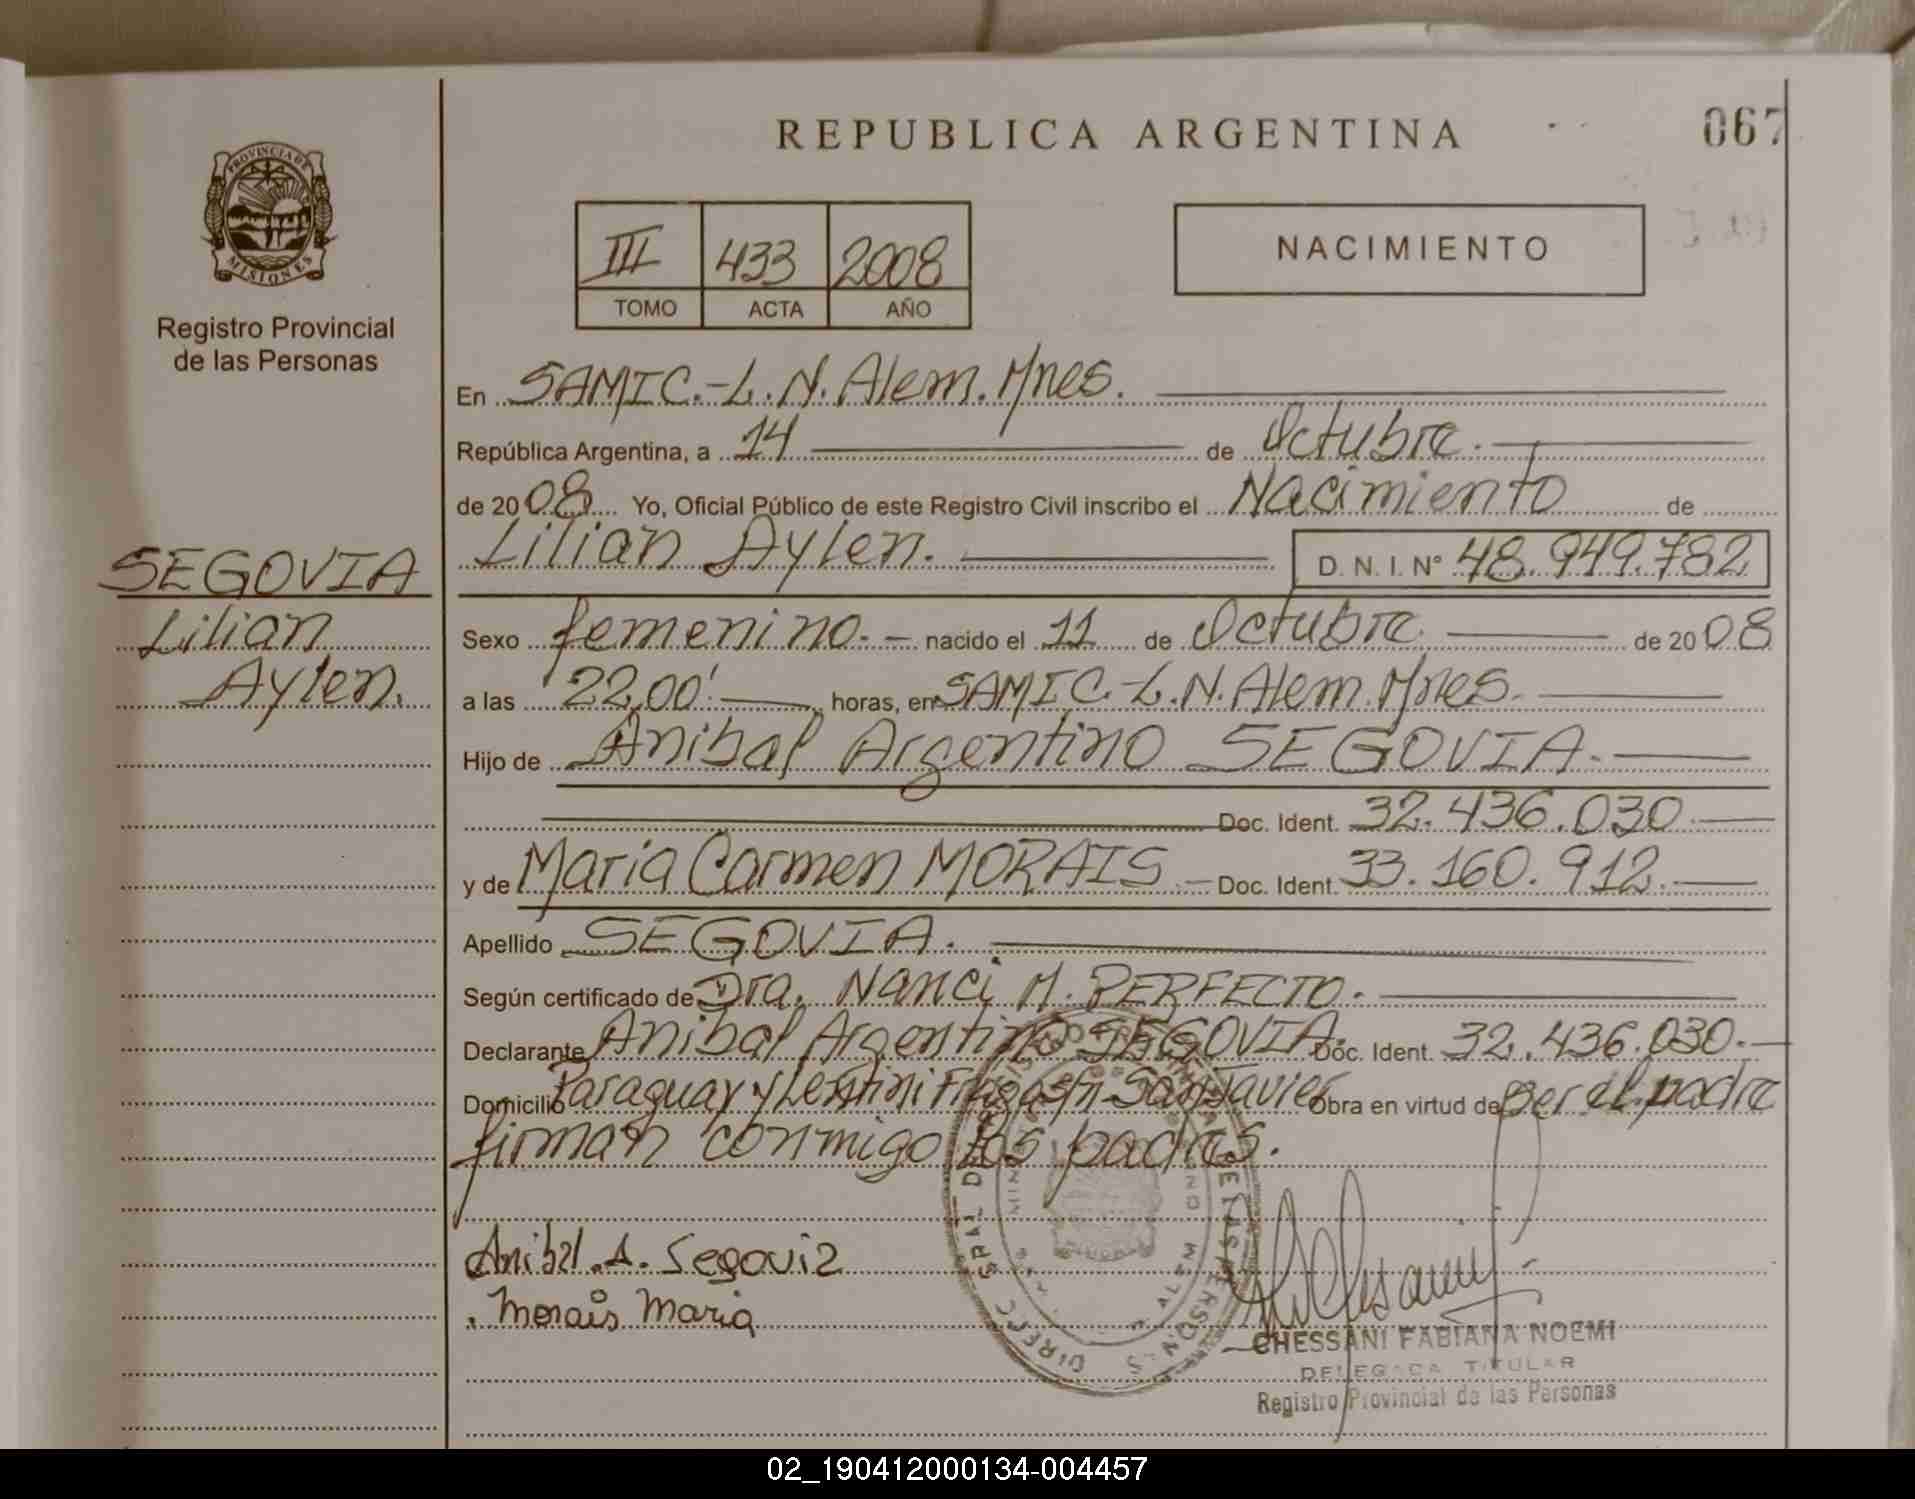 REPUBLICA ARGENTINA
067
PROVINCIA DE
MISIONES
Registro Provincial
de las Personas
III 433 2008
TOMO ACTA AÑO
NACIMIENTO
En SAMIC.-L.N.Alem.Mnes.
República Argentina, a 14 de Octubre.
de 2008 Yo, Oficial Público de este Registro Civil inscribo el Nacimiento de
Lilian Aylen. D. N. I. N° 48.949.782
SEGOVIA
Lilian
Aylen.
Sexo femenino.- nacido el 11 de Octubre de 2008
a las 22,00' horas, en SAMIC.-L.N.Alem.Mnes.
Hijo de Anibal Argentino SEGOVIA.
Doc. Ident. 32.436.030
y de Maria Carmen MORAIS.- Doc. Ident. 33.160.912.
Apellido SEGOVIA.
Según certificado de Dra. Nanci M. PERFECTO.
Declarante Anibal Argentino SEGOVIA. Doc. Ident. 32.436.030.-
Domicilio Paraguay y San Javier Obra en virtud de ser el padre
firman conmigo los padres.
Anibal.A.Segovia
Morais Maria
CHESSANI FABIANA NOEMI
DELEGADA TITULAR
Registro Provincial de las Personas
02_190412000134-004457